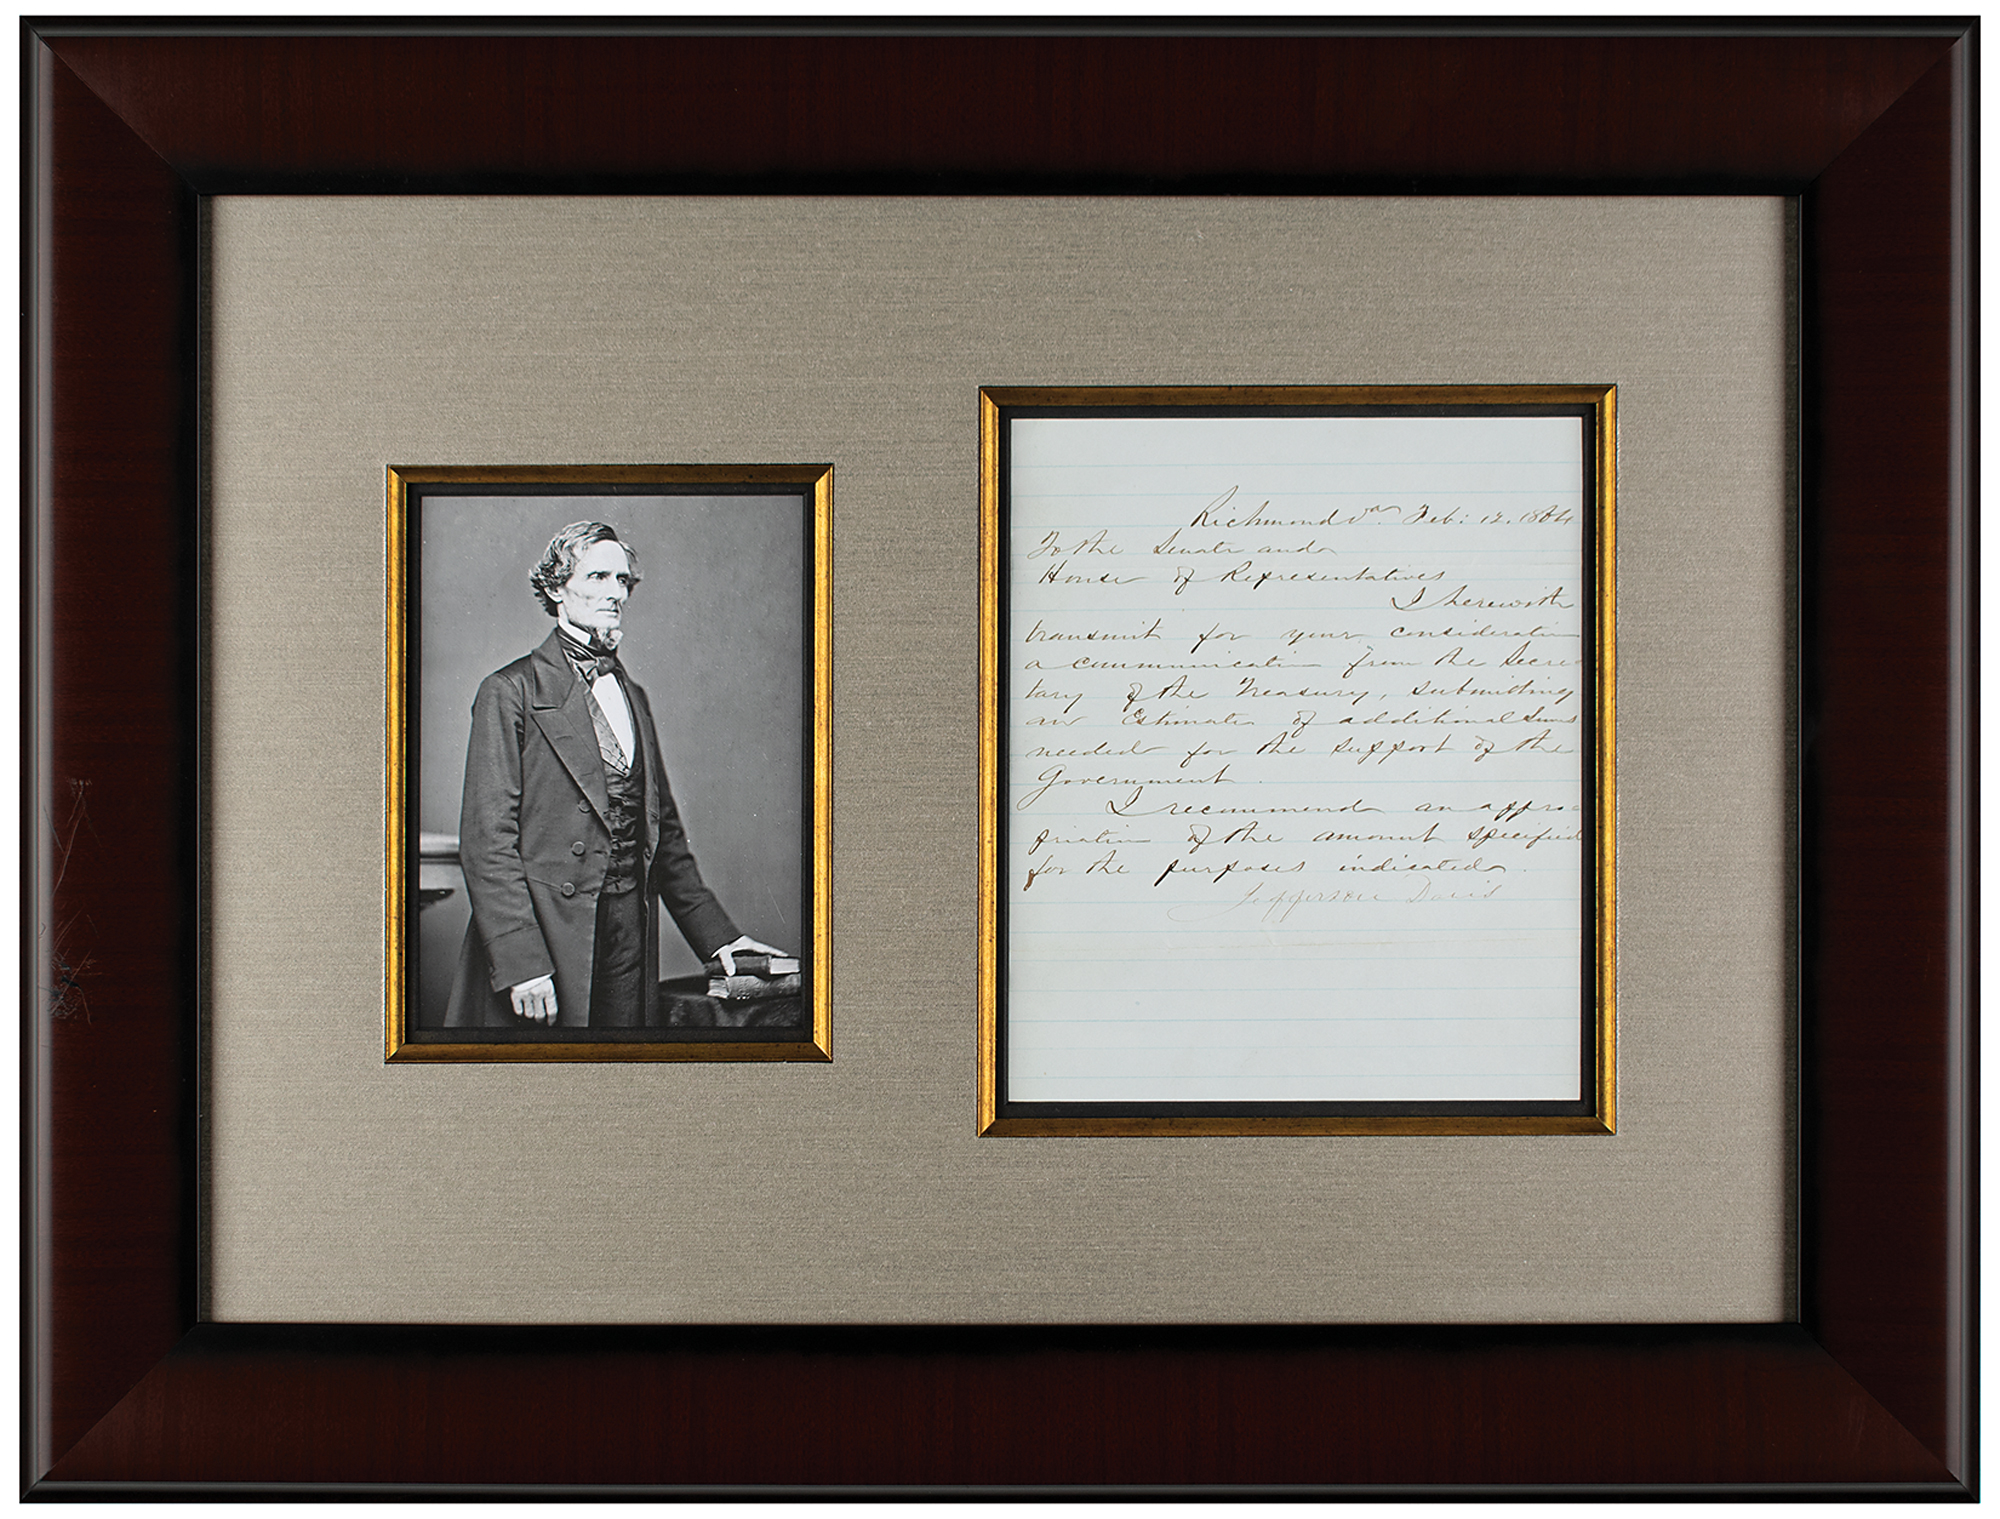 Richmond Va. Feb: 12. 1864
To the Senate and
House of Representatives
I herewith
transmit for your consideration
a communication from the Secre-
tary of the Treasury, submitting
an Estimate of additional sums
needed for the support of the
Government.
I recommend an appro-
priation of the amount specified
for the purposes indicated.
Jefferson Davis